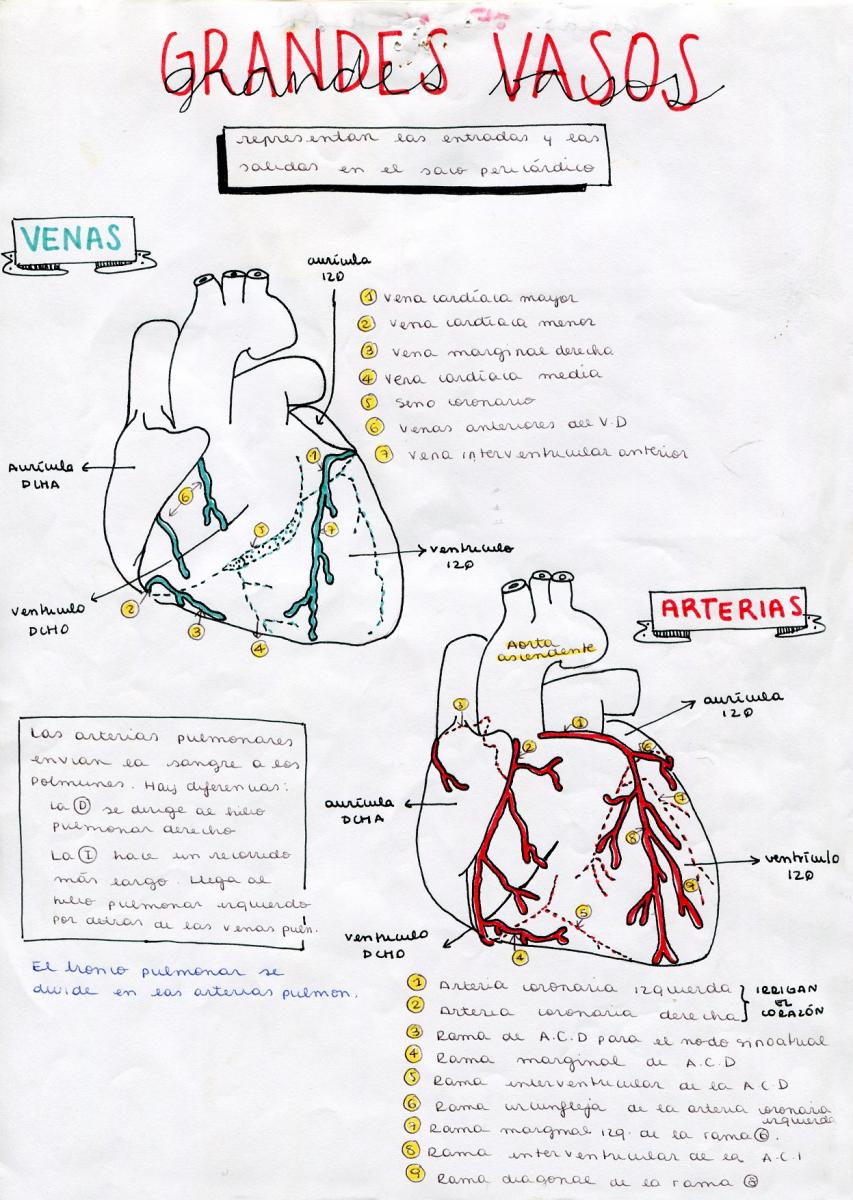 GRANDES VASOS
grandes vasos
representan las entradas y las
salidas en el saco pericárdico
VENAS
aurícula
IZQ
① Vena cardíaca mayor
② Vena cardíaca menor
③ Vena marginal derecha
④ Vena cardíaca media
⑤ Seno coronario
⑥ Venas anteriores del V.D
⑦ Vena interventricular anterior
Aurícula
DCHA
1
6
5
7
ventrículo
IZQ
ventrículo
DCHO
2
3
4
ARTERIAS
Aorta
ascendente
aurícula
IZQ
3
1
2
6
7
aurícula
DCHA
8
ventrículo
IZQ
9
5
ventrículo
DCHO
4
Las arterias pulmonares
envían la sangre a los
polmunes. Hay diferencias:
La Ⓓ se dirige al hilio
pulmonar derecho
La Ⓘ hace un recorrido
más largo. Llega al
hilio pulmonar izquierdo
por detrás de las venas pulm.
El tronco pulmonar se
divide en las arterias pulmon.
① Arteria coronaria izquierda
② Arteria coronaria derecha
} IRRIGAN
EL
CORAZÓN
③ Rama de A.C.D para el nodo sinoatrial
④ Rama marginal de A.C.D
⑤ Rama interventricular de la A.C.D
⑥ Rama circunfleja de la arteria coronaria
izquierda
⑦ Rama marginal izq. de la rama ⑥.
⑧ Rama interventricular de la A.C.I
⑨ Rama diagonal de la rama ⑧